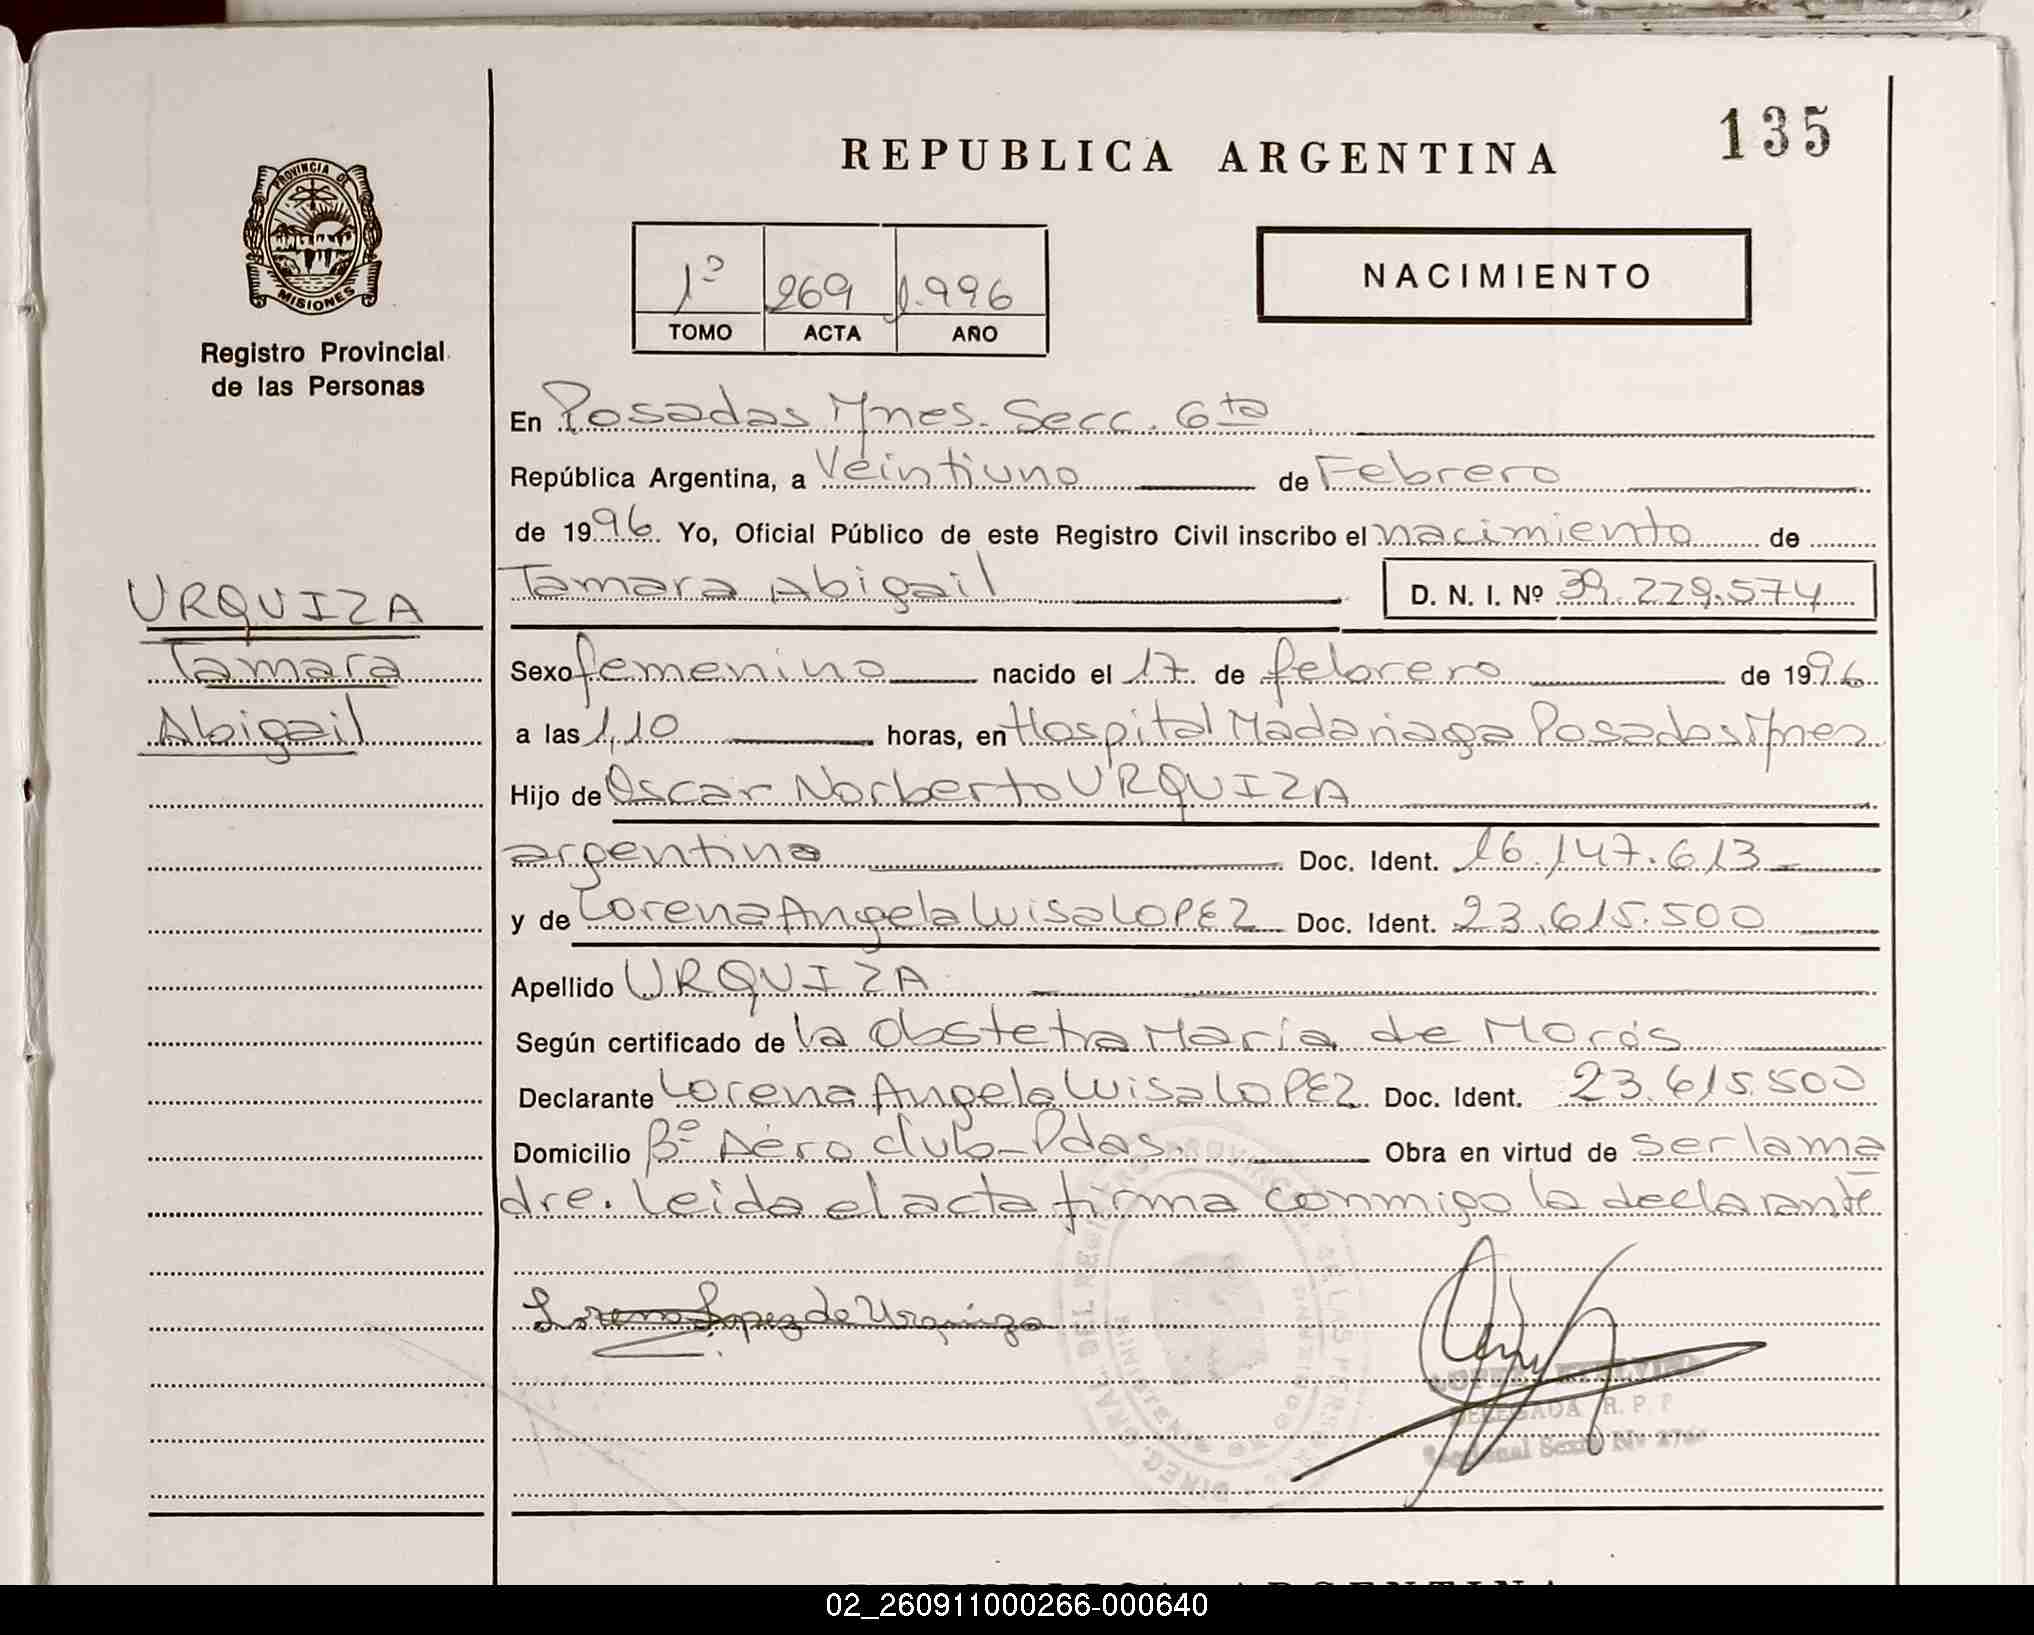 135
REPUBLICA ARGENTINA
PROVINCIA DE
MISIONES
Registro Provincial
de las Personas
1º 269 1.996
TOMO ACTA AÑO
NACIMIENTO
En Posadas Mnes. Secc. 6ta
República Argentina, a Veintiuno de Febrero
de 1996. Yo, Oficial Público de este Registro Civil inscribo el nacimiento de
URQUIZA
Tamara
Abigail
Tamara Abigail D. N. I. Nº 39.229.574
Sexo femenino nacido el 17 de febrero de 1996
a las 1,10 horas, en Hospital Madariaga Posadas Mnes
Hijo de Oscar Norberto URQUIZA
argentino Doc. Ident. 16.147.613
y de Lorena Angela Luisa LOPEZ Doc. Ident. 23.615.500
Apellido URQUIZA
Según certificado de la Obstetra María de Morós
Declarante Lorena Angela Luisa LOPEZ Doc. Ident. 23.615.500
Domicilio Bº Aéro club-Pdas. Obra en virtud de ser la ma
dre. Leida el acta firma conmigo la declarante
Lorena Lopez de Urquiza
DELEGADA R. P. P
02_260911000266-000640